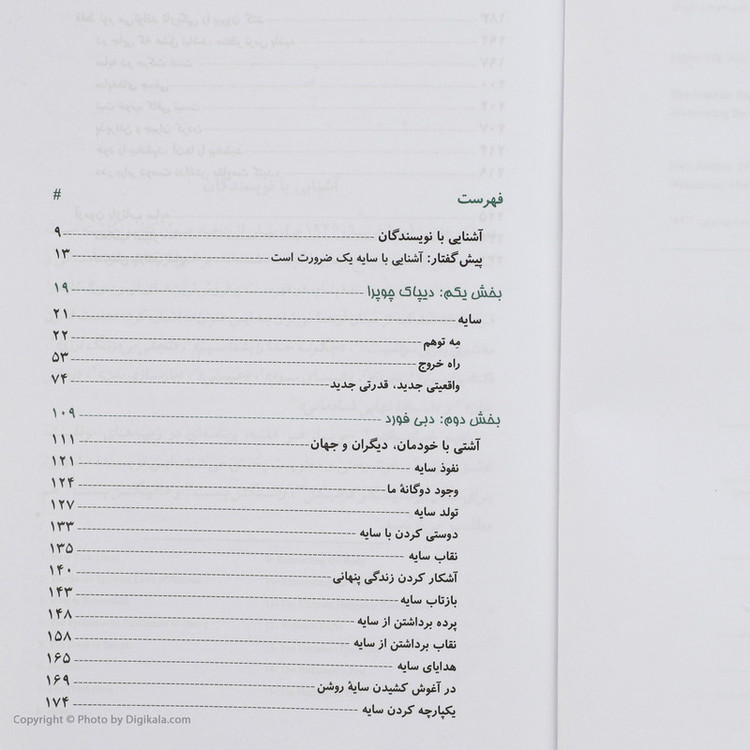 فهرست #
آشنایی با نویسندگان ۹
پیش‌گفتار: آشنایی با سایه یک ضرورت است ۱۳
بخش یکم: دیپاک چوپرا ۱۹
سایه ۲۱
مِه توهم ۲۲
راه خروج ۵۳
واقعیتی جدید، قدرتی جدید ۷۴
بخش دوم: دبی فورد ۱۰۹
آشتی با خودمان، دیگران و جهان ۱۱۱
نفوذ سایه ۱۲۱
وجود دوگانهٔ ما ۱۲۴
تولد سایه ۱۲۷
دوستی کردن با سایه ۱۳۳
نقاب سایه ۱۳۵
آشکار کردن زندگی پنهانی ۱۴۰
بازتاب سایه ۱۴۳
پرده برداشتن از سایه ۱۴۸
نقاب برداشتن از سایه ۱۵۸
هدایای سایه ۱۶۵
در آغوش کشیدن سایهٔ روشن ۱۶۹
یکپارچه کردن سایه ۱۷۴
Copyright © Photo by Digikala.com